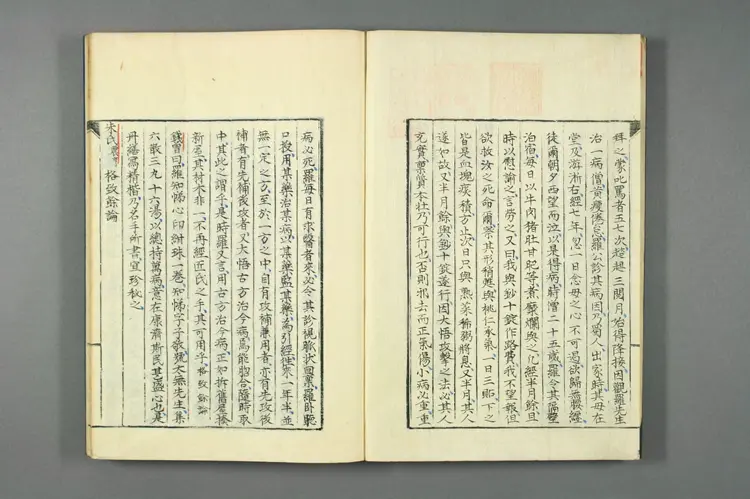 拜之蒙叱罵者五七次趑趄三閱月始得降接因觀羅先生
治一病僧黃瘦倦怠羅公診其病因乃蜀人出家時其母在
堂及游浙右經七年忽一日念母之心不可遏欲歸無腰纏
徒爾朝夕西望而泣以是得病時僧二十五歲羅令其隔壁
泊宿每日以牛肉猪肚甘肥等煮糜爛與之凡經半月餘且
時以慰諭之言勞之又曰我與鈔十錠作路費我不望報但
欲救汝之死命爾察其形稍甦與桃仁承氣一日三貼下之
皆是血塊痰積方止次日只與熟菜稀粥將息又半月其人
遂如故又半月餘與鈔十錠遂行因大悟攻擊之法必其人
充實稟質本壯乃可行也否則邪去而正氣傷小病必重重
病必死羅每日有求醫者來必令其診視脈狀回稟羅臥聽
口授用某藥治某病以某藥監某藥以某藥為引經往來一年半並
無一定之方至於一方之中自有攻補兼用者亦有先攻後
補者有先補後攻者又大悟古方治今病焉能脗合隨時取
中其此之謂乎是時羅又言用古方治今病正如拆舊屋湊
新屋其材木非一不再經匠氏之手其可用乎格致餘論
鏡曾曰羅知悌心印紺珠一卷知悌字子敬號太無先生集
六散三九十六湯以總持萬病意在康濟斯民其盛心也是
丹繕寫精楷乃名手所書宜珍秘之
朱氏 格致餘論